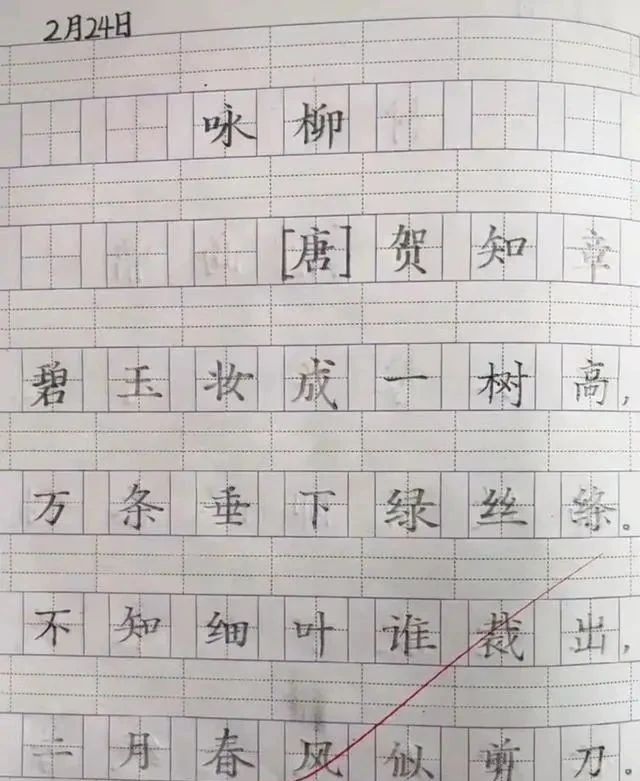 2月24日
咏柳
[唐]贺知章
碧玉妆成一树高,
万条垂下绿丝绦。
不知细叶谁裁出,
二月春风似剪刀。